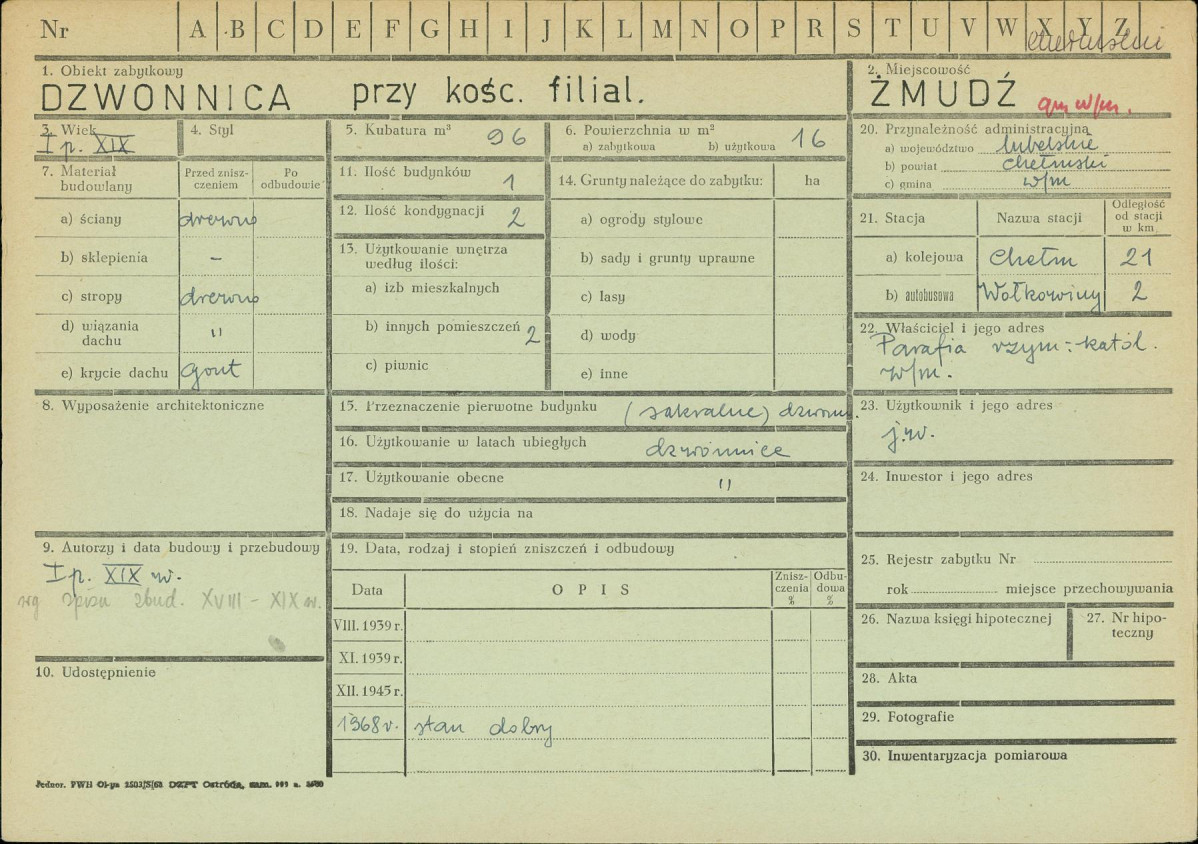 Nr A B C D E F G H I J K L M N O P R S T U V W X Y Z
chełmski
1. Obiekt zabytkowy
DZWONNICA przy kośc. filial.
2. Miejscowość
ŻMUDŹ gm w/m.
3. Wiek
I p. XIX
4. Styl
5. Kubatura m³ 96
6. Powierzchnia w m²
a) zabytkowa b) użytkowa 16
7. Materiał budowlany
Przed zniszczeniem
Po odbudowie
a) ściany drewno
b) sklepienia –
c) stropy drewno
d) wiązania dachu "
e) krycie dachu gont
8. Wyposażenie architektoniczne
9. Autorzy i data budowy i przebudowy
I p. XIX w.
wg spisu zbud. XVIII – XIX w.
10. Udostępnienie
11. Ilość budynków 1
12. Ilość kondygnacji 2
13. Użytkowanie wnętrza według ilości:
a) izb mieszkalnych
b) innych pomieszczeń 2
c) piwnic
14. Grunty należące do zabytku: ha
a) ogrody stylowe
b) sady i grunty uprawne
c) lasy
d) wody
e) inne
15. Przeznaczenie pierwotne budynku (sakralne) dzwonn.
16. Użytkowanie w latach ubiegłych dzwonnice
17. Użytkowanie obecne "
18. Nadaje się do użycia na
19. Data, rodzaj i stopień zniszczeń i odbudowy
Data
OPIS
Zniszczenia %
Odbudowa %
VIII. 1939 r.
XI. 1939 r.
XII. 1945 r.
1968 r. stan dobry
20. Przynależność administracyjna
a) województwo lubelskie
b) powiat chełmski
c) gmina w/m
21. Stacja
Nazwa stacji
Odległość od stacji w km
a) kolejowa Chełm 21
b) autobusowa Wołkowiany 2
22. Właściciel i jego adres
Parafia rzym:-katol.
w/m.
23. Użytkownik i jego adres
j.w.
24. Inwestor i jego adres
25. Rejestr zabytku Nr
rok miejsce przechowywania
26. Nazwa księgi hipotecznej
27. Nr hipoteczny
28. Akta
29. Fotografie
30. Inwentaryzacja pomiarowa